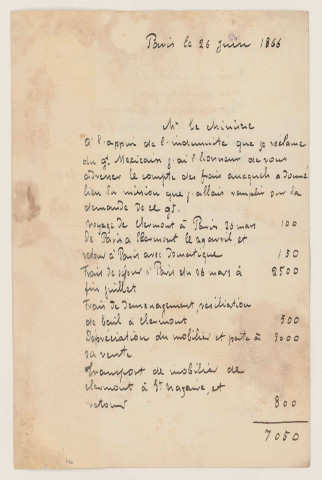 Paris le 26 Juin 1866
Mr le Ministre
A l'appui de l'indemnité que je réclame
du gt Mexicain j'ai l'honneur de vous
adresser le compte des frais auxquels a donné
lieu la mission que j'allais remplir sur la
demande de ce gt.
Voyage de Clermont à Paris 26 mars 100
De Paris à Clermont le 29 avril et
retour à Paris avec domestique 150
Frais de séjour à Paris du 26 mars à 2500
fin juillet
Frais de déménagement, résiliation
de bail à Clermont 500
Dépréciation du mobilier et perte à 3000
sa vente
Transport de mobilier de
Clermont à St Nazaire, et
retour 800
7050